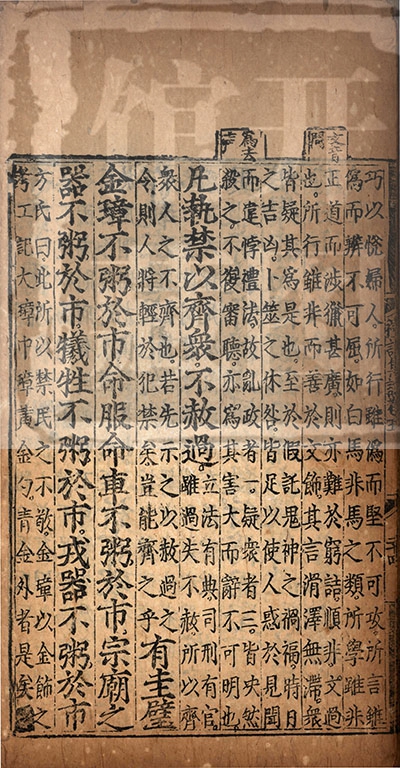 文音問
爲去聲
巧以悅婦人。所行雖僞而堅不可攻。所言雖
僞而辨不可屈。如白馬非馬之類。所學雖非
正道而涉獵甚廣。則亦難於窮詰。順非。文過
也。所行雖非而善於文飾。其言滑澤無滯。衆
皆疑其爲是也。至於假託鬼神之禍福。時日
之吉凶。卜筮之休咎。皆足以使人惑於見聞
而違悖禮法。故亂政者一。疑衆者三。皆決然
殺之。不復審聽。亦爲其害大而辭不可明也。
凡執禁以齊衆不赦過。立法有典。司刑有官。
雖過失不赦。所以齊
衆人之不齊也。若先示之以赦過之
令則人將輕於犯禁矣。豈能齊之乎
有圭璧
金璋不粥於市。命服命車不粥於市。宗廟之
器不粥於市。犧牲不粥於市。戎器不粥於市
方氏曰。此所以禁民之不敬。金璋以金飾之
考工記大璋中璋黃金勺。青金外者是矣